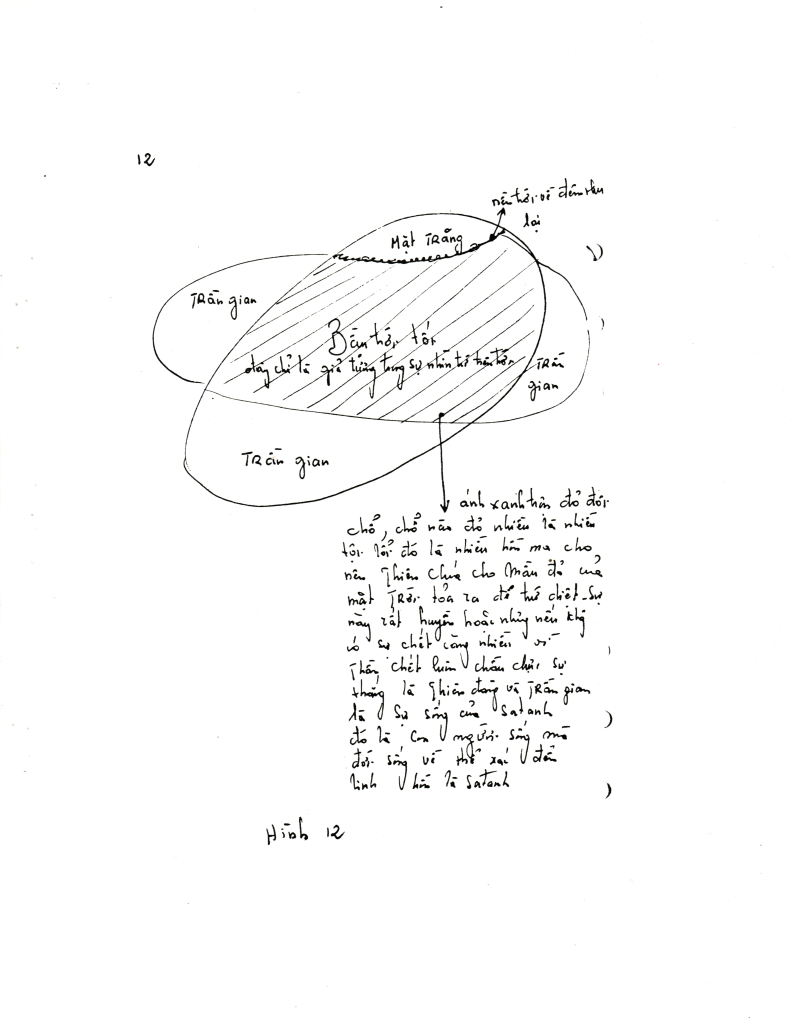 12
nên trời về đêm thu
lại
Mặt TRăng
TRần gian
Bầu trời tối
đây chỉ là giả tưởng trong sự nhìn từ trên trời
TRần
gian
TRần gian
ánh xanh trên đỏ đối
chổ, chổ nào đỏ nhiều là nhiều
tội lổi đó là nhiều hồn ma cho
nên Thiên Chúa cho Màu đỏ của
mặt TRời tỏa ra để trừ diệt Sự
này rất huyền hoặc những nếu khg
có sự chết càng nhiều vì
Thần chết luôn chầu chực Sự
thắng là Thiên đàng và TRần gian
là Sự sống của Satanh
đó là con người sống mà
đời sống về thể xác đến
linh hồn là Satanh
Hình 12